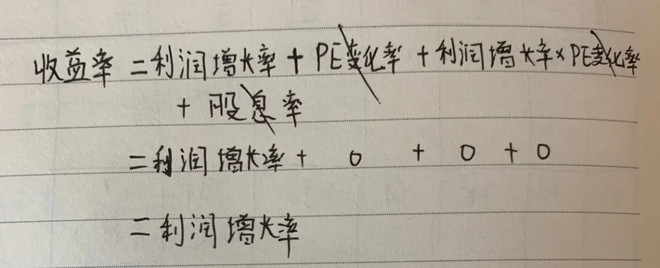 收益率 = 利润增长率 + PE变化率 + 利润增长率×PE变化率
+ 股息率
= 利润增长率 + 0 + 0 + 0
= 利润增长率